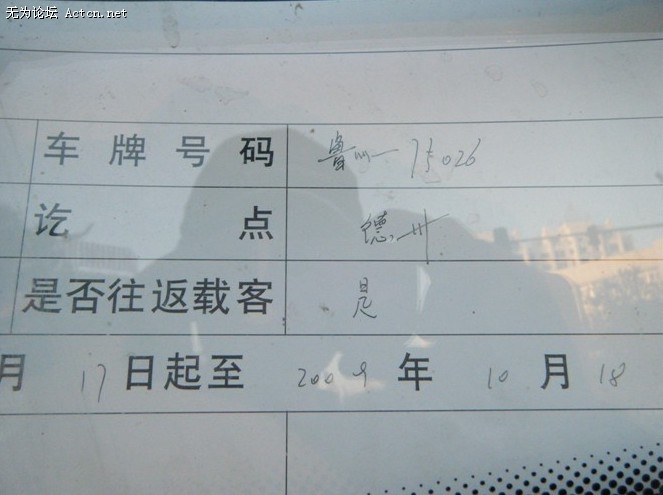 无为论坛 Actcn.net
车牌号码 鲁
讫点 德州
是否往返载客 是
月 17 日起至 2009 年 10 月 18